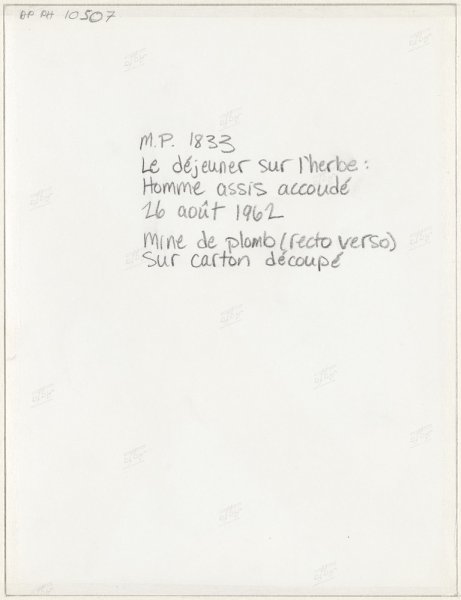 AP PH 10507
M.P. 1833
Le déjeuner sur l'herbe :
Homme assis accoudé
26 août 1962
Mine de plomb (recto verso)
Sur carton découpé